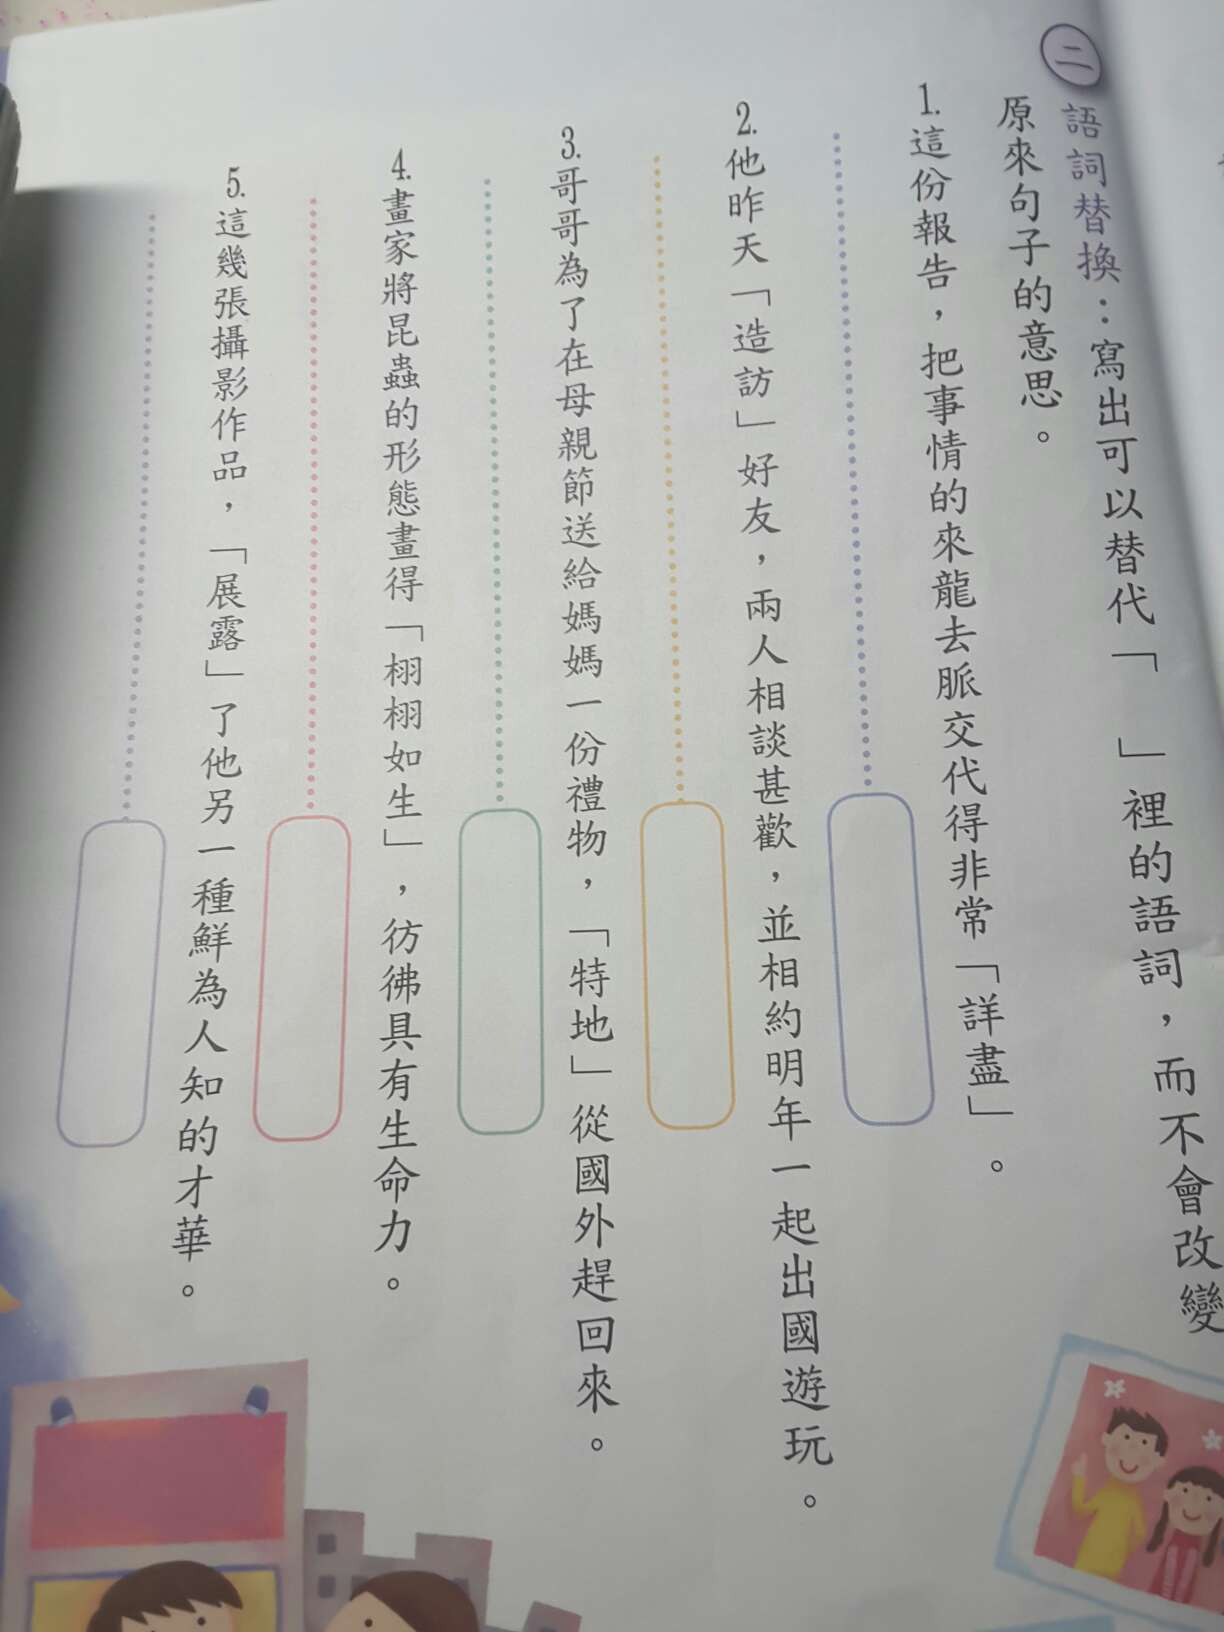 二 語詞替換：寫出可以替代「 」裡的語詞，而不會改變
原來句子的意思。
1. 這份報告，把事情的來龍去脈交代得非常「詳盡」。
2. 他昨天「造訪」好友，兩人相談甚歡，並相約明年一起出國遊玩。
3. 哥哥為了在母親節送給媽媽一份禮物，「特地」從國外趕回來。
4. 畫家將昆蟲的形態畫得「栩栩如生」，彷彿具有生命力。
5. 這幾張攝影作品，「展露」了他另一種鮮為人知的才華。